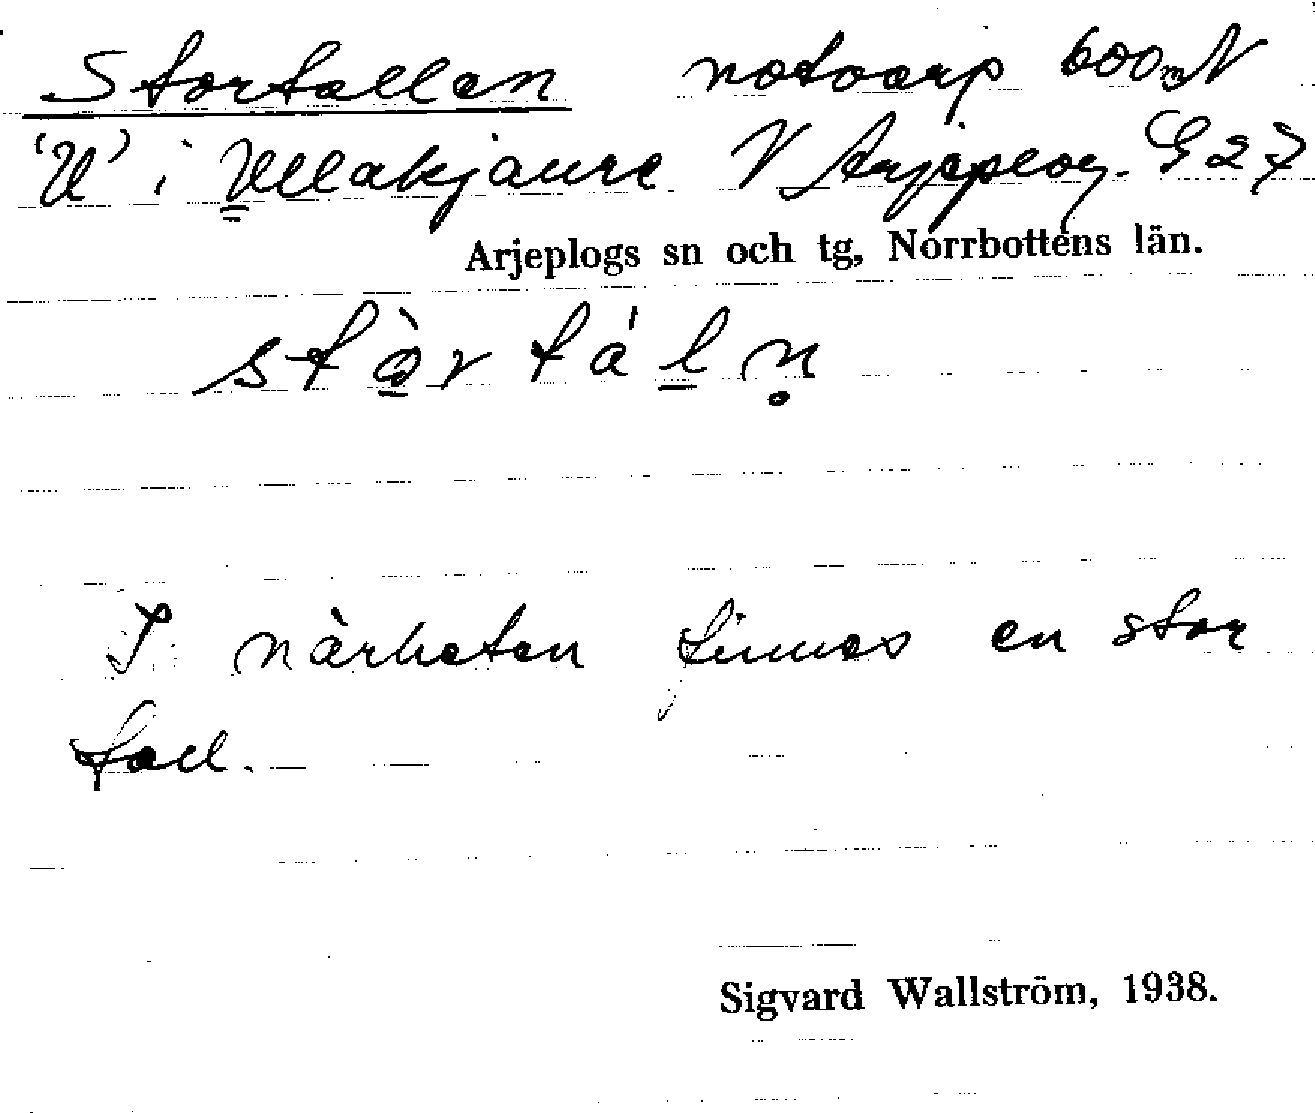 Stortallen notvarp 600 m N
'U' i Ullakjaure V Arjeplog. G 27
Arjeplogs sn och tg, Norrbottens län.
stòrtáln̥
I närheten finnes en stor
tall.
Sigvard Wallström, 1938.